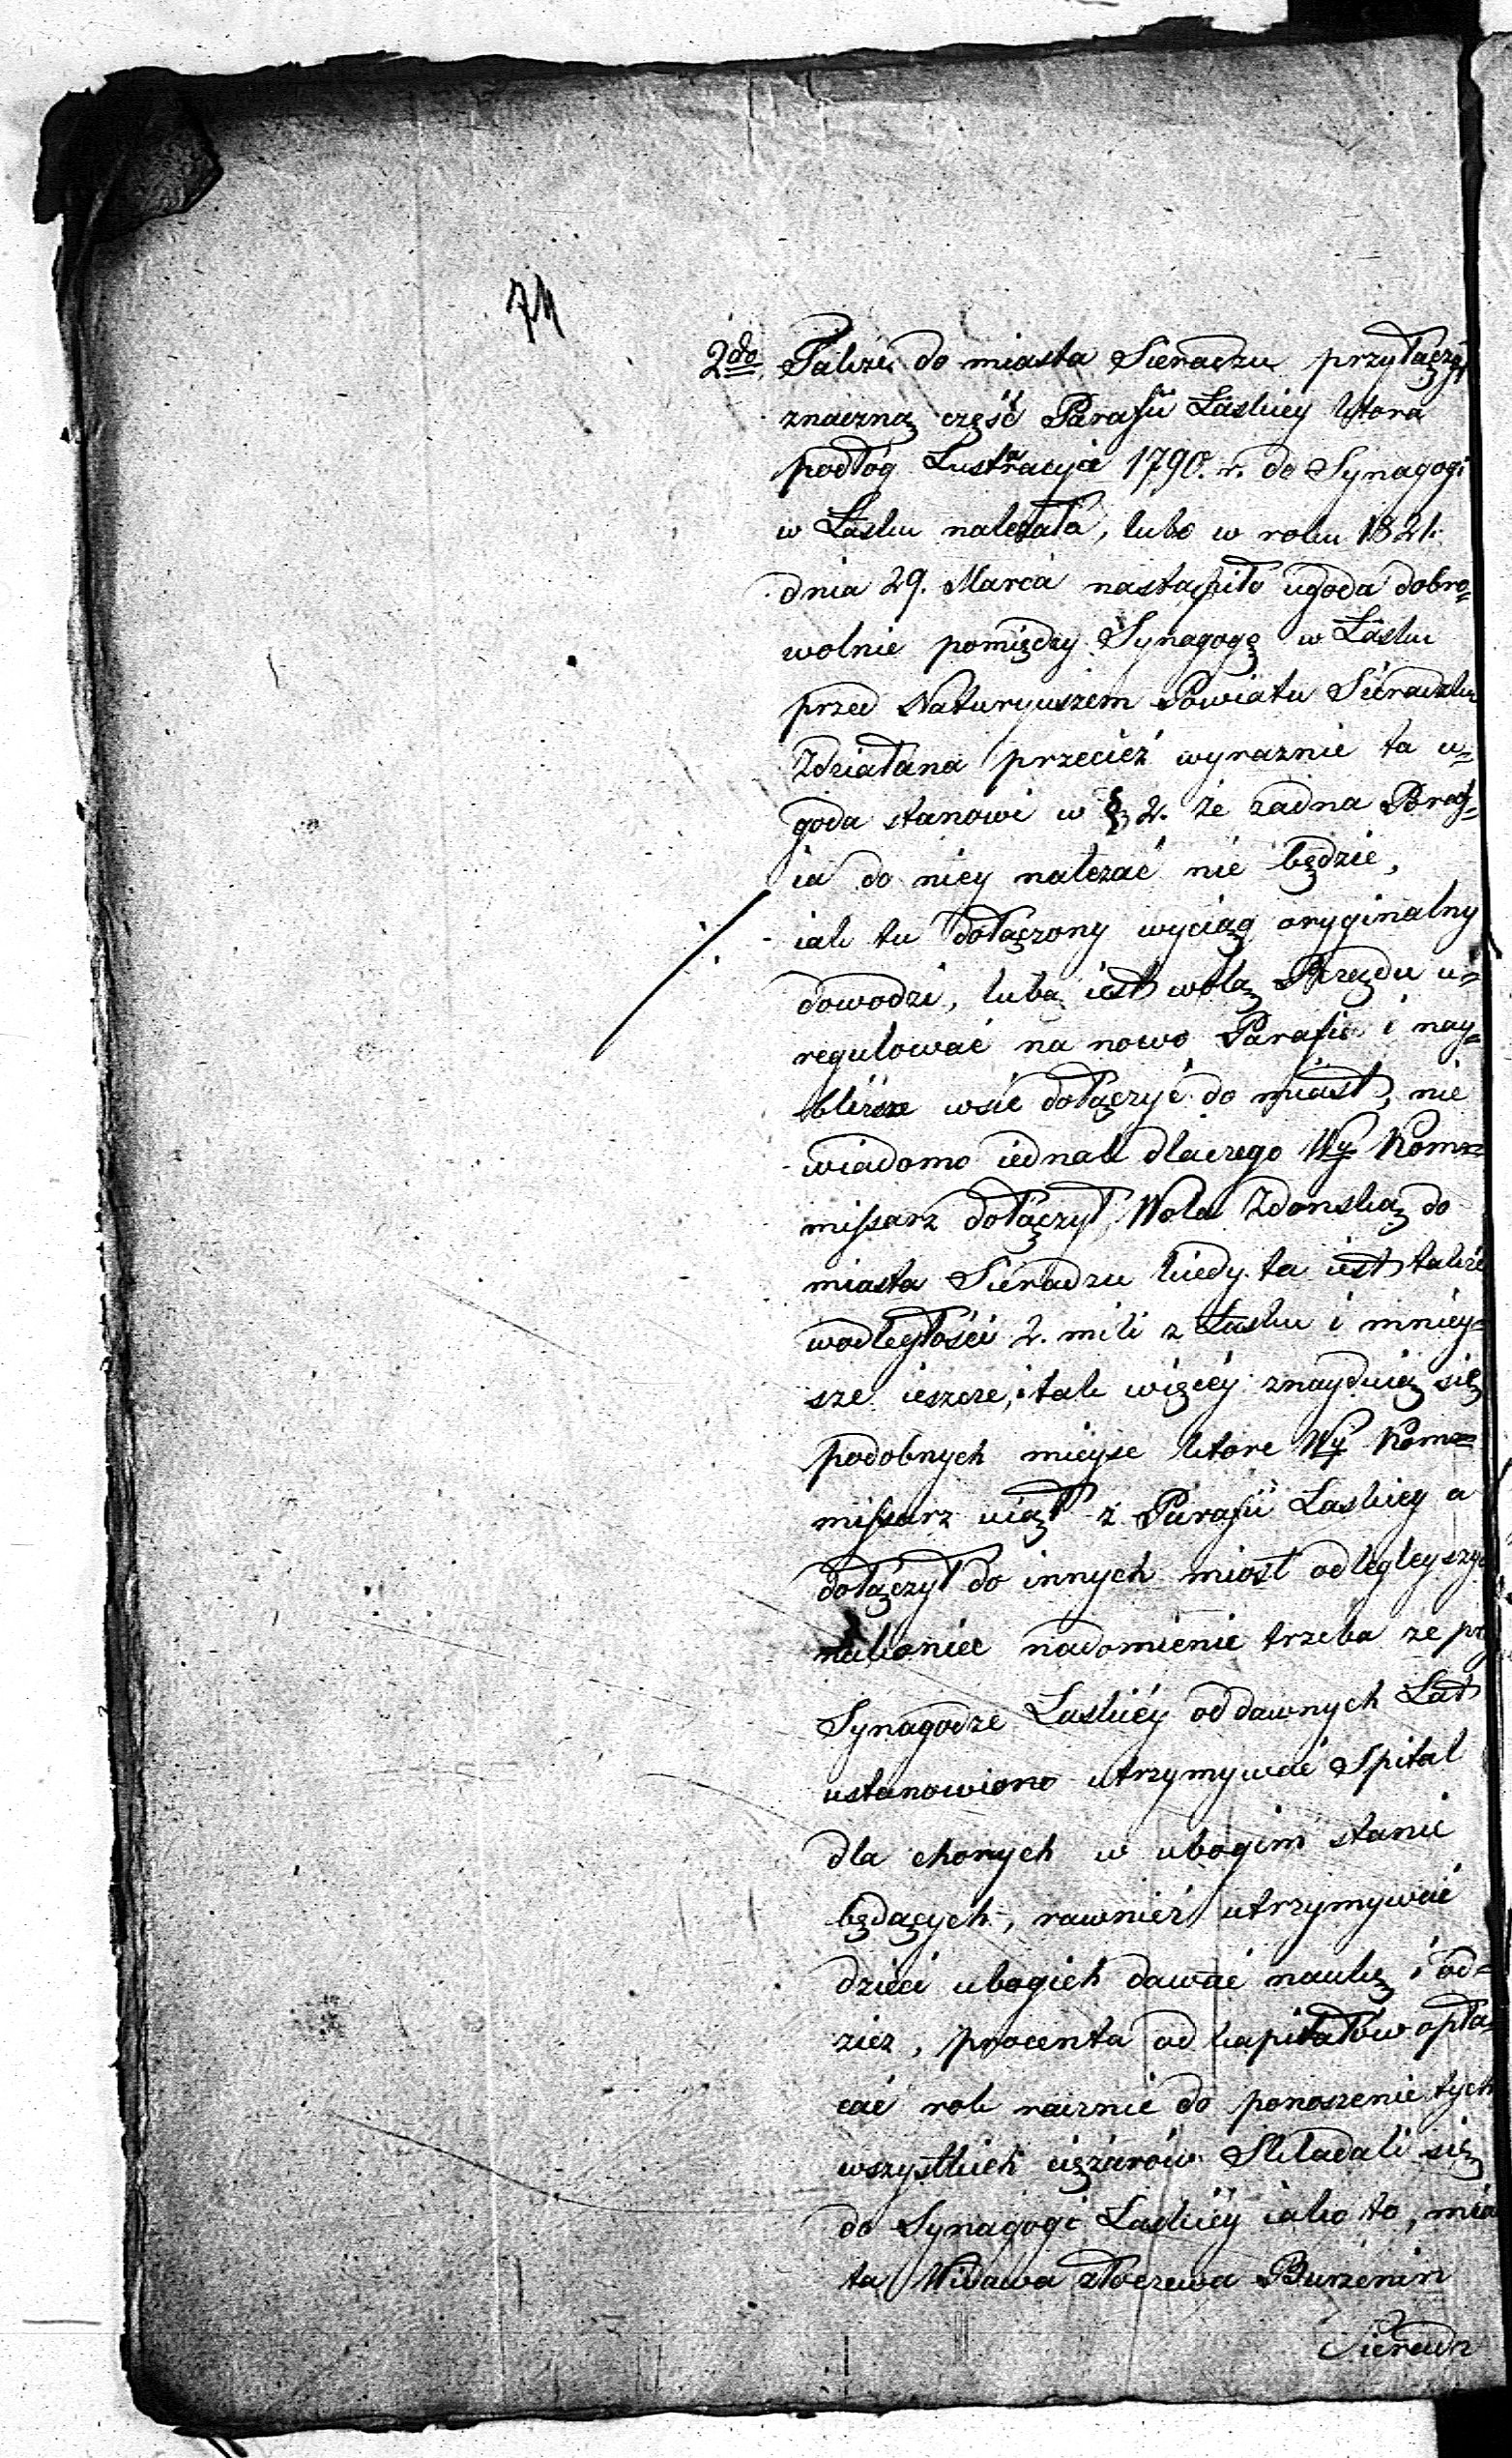 74
2do Także do miasta Sieradzu przyłączył
znaczną część Parafii Łaskiey ktora
podłóg Lustracyie 1790. r. do Synagogi
w Łasku należała, lubo w roku 1821.
dnia 29. Marca nastąpiło ugoda dobro=
wolnie pomiędzy Synagogę w Łasku
przed Naturyuszem Powiatu Sieradzku
Zdziałana przecież wyraznie ta u=
goda stanowi w § 2. że zadna
ia do niey należać nie będzie,
iak tu dołączony wyciąg oryginalny
dowodzi, lubą iest wolą Rzędu u=
regulować na nowo Parafie i nay=
bliższe wsie dołączyć do miast, nie
wiadomo iednak dlaczego Wy Kom=
missarz dołączył, Wola Zdonską do
miasta Sieradzu kiedy ta iest także
wodległości 2. mili z Łasku i mniey=
sze ieszcze, i tak więcey znayduię się
podobnych mieysc ktore Wy Kom=
missarz uiął z Parafii Laskiey a
dołączył do innych miast odlegleyszych
nakoniec nadomienie trzeba ze przy
Synagodze Laskiéy od dawnych Lat
ustanowiono utrzymywać Spital
dla chorych w ubogim stanie
będących, rawnież utrzymywać
dzieci ubogich dawać naukę i od=
zież, procenta od kapitałów opła=
cać rok rocznie do ponoszenie tych
wszystkich ciężarów Składali się
do Synagogi Laskiéy iako to, mia
ta Widawa złoczewa Burzenin
Sieradz